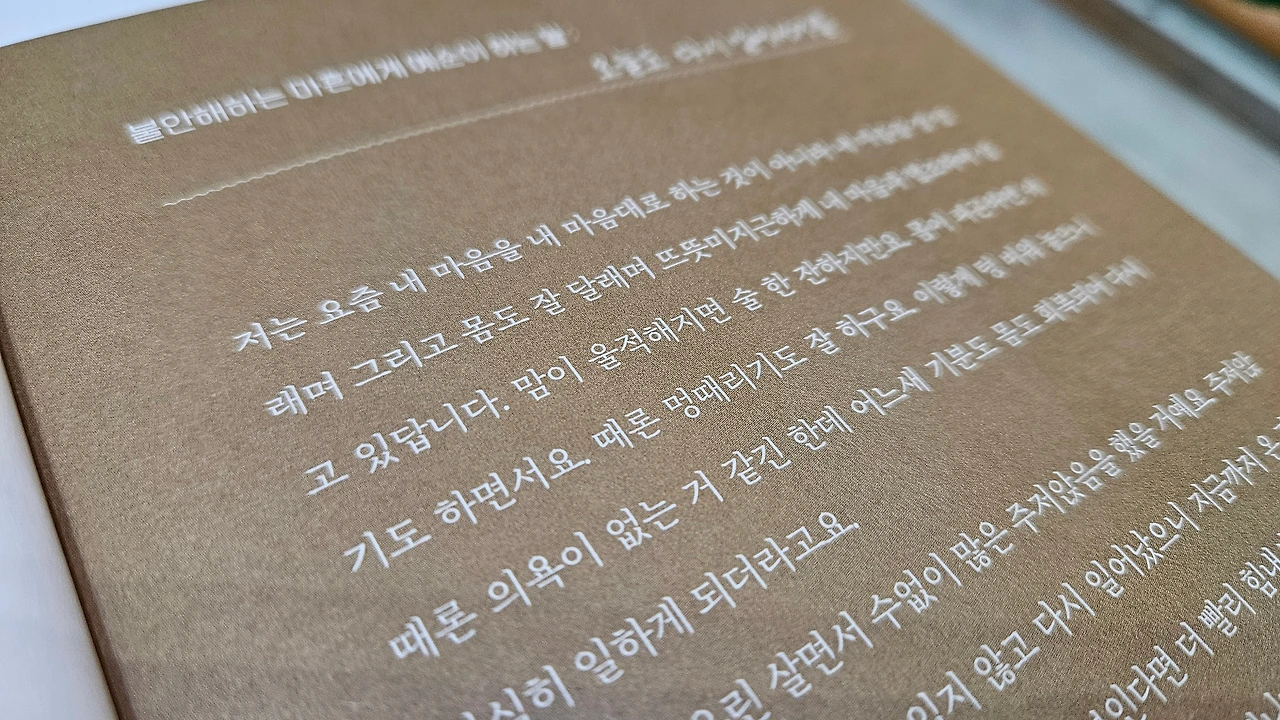 불안해하는 마흔에게 예순이 하는 말
오늘도 다시 일어서기를
저는 요즘 내 마음을 내 마음대로 하는 것이 아니라 내 마음을 잘 달
래며 그리고 몸도 잘 달래며 뜨뜻미지근하게 내 마음과 협조하며 살
고 있답니다. 맘이 울적해지면 술 한 잔하지만요. 몸이 피곤하면 쉬
기도 하면서요. 때론 멍때리기도 잘 하구요. 이렇게 멍 때려 놓으니
때론 의욕이 없는 거 같긴 한데 어느새 기분도 몸도 회복되어 다시
심히 일하게 되더라고요.
우린 살면서 수없이 많은 주저앉음을 했을 거예요. 주저앉
있지 않고 다시 일어났으니 지금까지 온
있다면 더 빨리 힘내